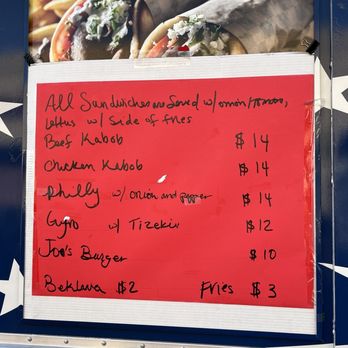 All Sandwiches are Served w/ onion/Tomato,
lettus w/ Side of fries
Beef Kabob $14
Chicken Kabob $14
Philly w/ onion and pepper $14
Gyro w/ Tizekiu $12
Joe's Burger $10
Beklava $2 Fries $3